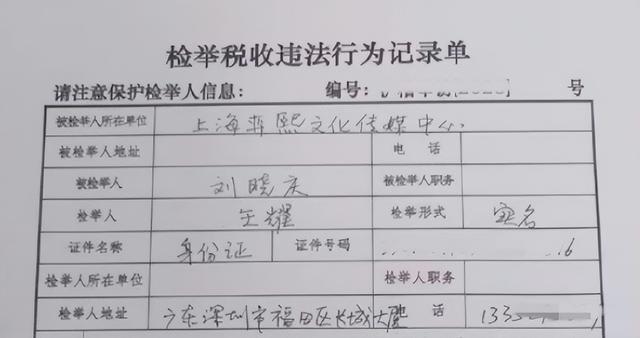 检举税收违法行为记录单
请注意保护检举人信息： 编号： 号
被检举人所在单位 上海弈熙文化传媒中心
被检举人地址 电 话
被检举人 刘晓庆 被检举人职务
检举人 王耀 检举形式 实名
证件名称 身份证 证件号码 6
检举人所在单位 检举人职务
检举人地址 广东深圳市福田区长城大 话 133